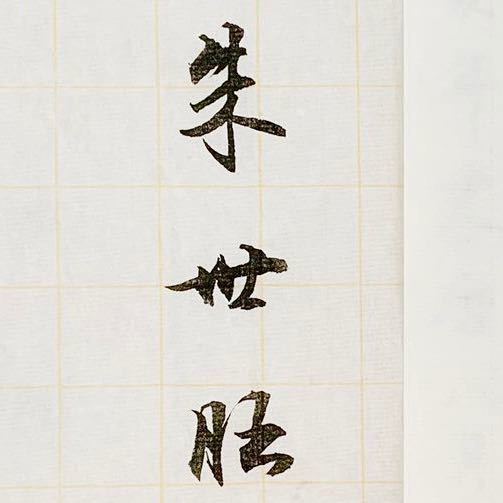 朱世胜